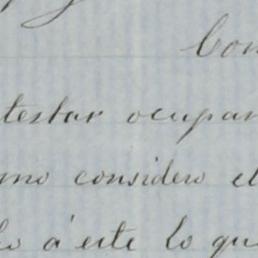 Con
testar ocupan
mo considero el
lo á este lo que